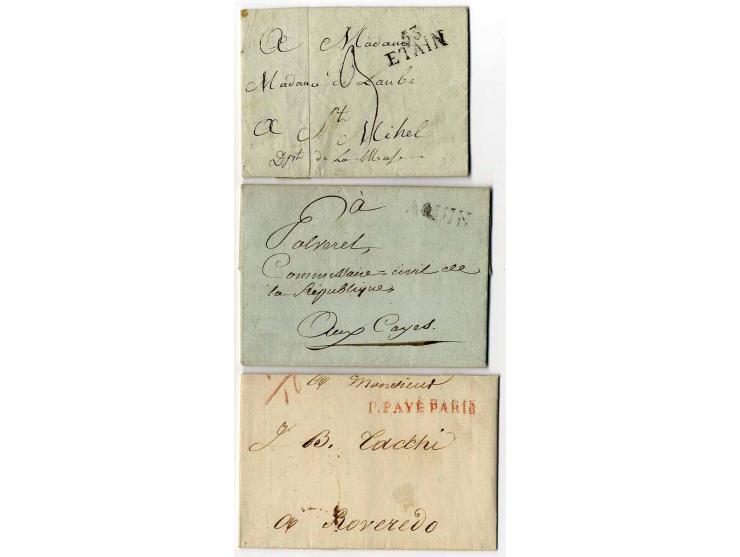 A Madame
53
ETAIN
Madame de Laube
A St Mihel
Dpt de La Meuse
à
AQUIN
Polverel,
Commissaire = civil de
la République,
Aux Cayes.
A Monsieur
P.PAYÉ PARIS
J. B. Tacchi
A Roveredo